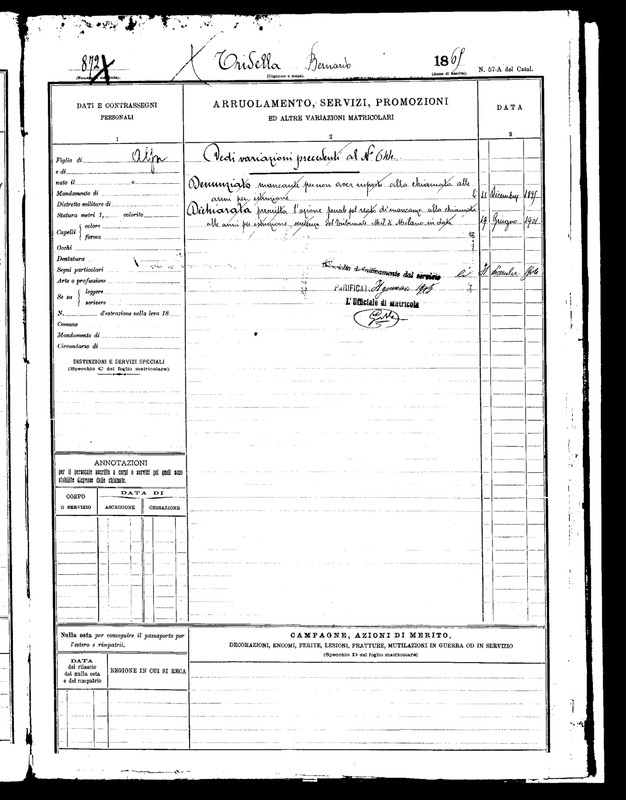 872 Tridella Bernardo 1865 N. 57-A del Catal.
(Cognome e nome) (Anno di nascita)
DATI E CONTRASSEGNI
PERSONALI
1
ARRUOLAMENTO, SERVIZI, PROMOZIONI
ED ALTRE VARIAZIONI MATRICOLARI
2
DATA
3
Figlio di
e di
nato il a
Mandamento di
Distretto militare di
Statura metri 1, colorito
Capelli colore
forma
Occhi
Dentatura
Segni particolari
Arte o professione
Se sa leggere
scrivere
N. d'estrazione nella leva 18
Comune
Mandamento di
Circondario di
DISTINZIONI E SERVIZI SPECIALI
(Specchio C del foglio matricolare).
Vedi variazioni precedenti al N° 644
Denunziato mancante per non aver risposto alla chiamata alle
armi per istruzione 21 Dicembre 1895
Dichiarata prescritta l'azione penale pel reato di mancanza alla chiamata
alle armi per istruzione, sentenza del Tribunale Mil. di Milano in data 19 Giugno 1901
definitivamente dal servizio li 31 dicembre 1904
PARIFICATO gennaio 1905
L'Ufficiale di matricola
ANNOTAZIONI
per il personale ascritto a corpi o servizi pei quali sono
stabilite diapense dalle chiamate.
CORPO
O SERVIZIO
DATA DI
ASCRIZIONE CESSAZIONE
Nulla osta per conseguire il passaporto per
l'estero e rimpatrii.
DATA
del rilascio
del nulla osta
e del rimpatrio
REGIONE IN CUI SI RECA
CAMPAGNE, AZIONI DI MERITO,
DECORAZIONI, ENCOMI, FERITE, LESIONI, FRATTURE, MUTILAZIONI IN GUERRA OD IN SERVIZIO
(Specchio D del foglio matricolare)